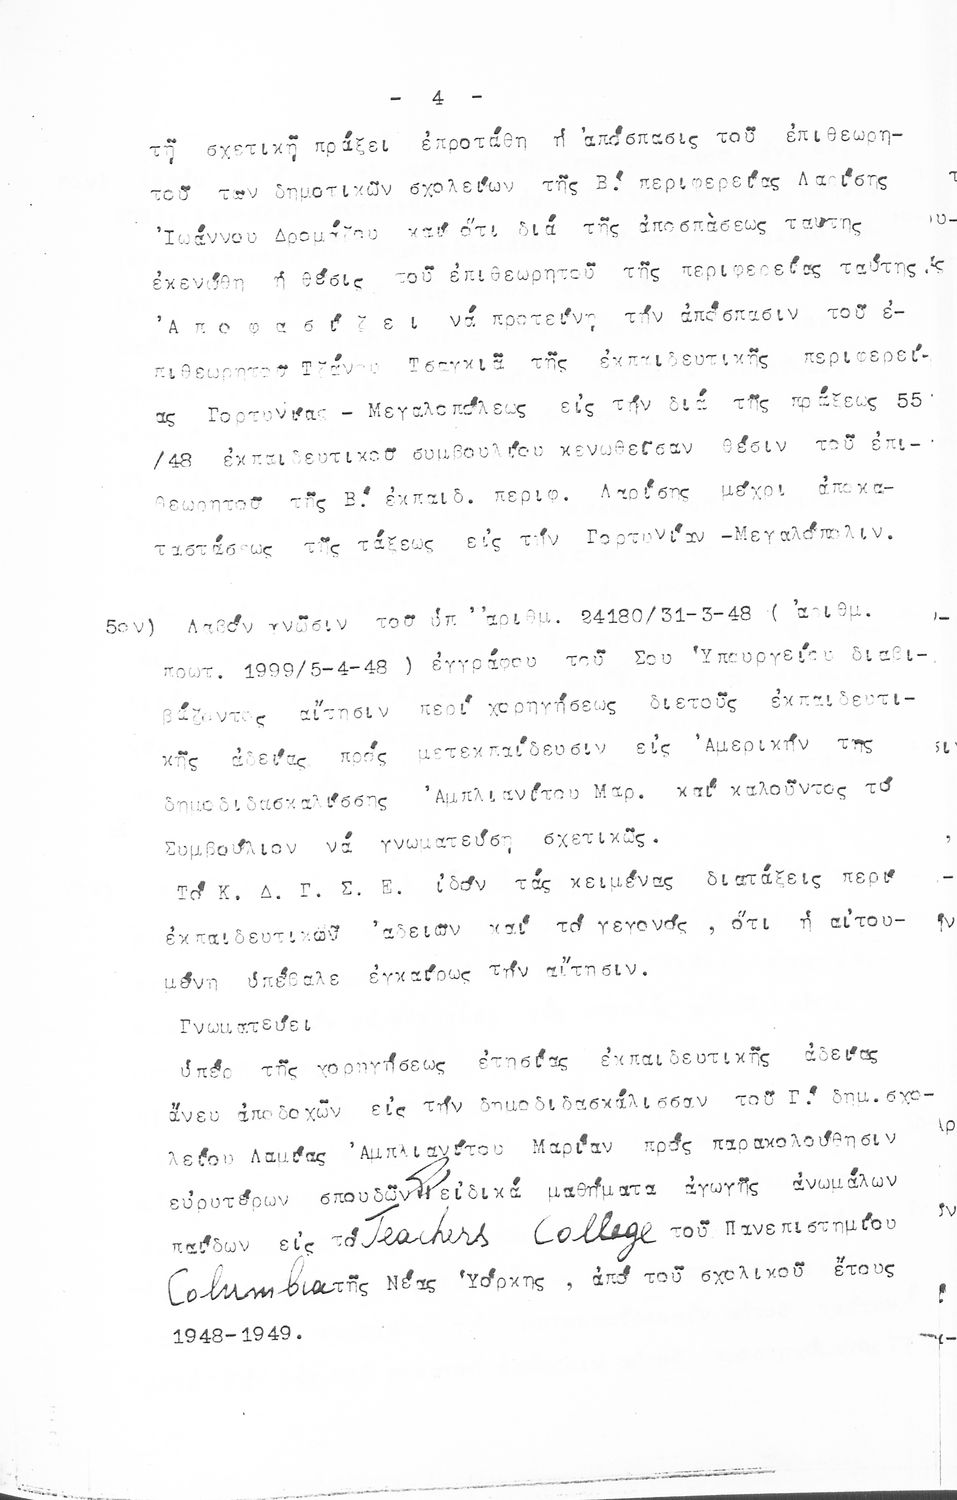 - 4 -
τῇ σχετικῇ πράξει ἐπροτάθη ἡ ἀπόσπασις τοῦ ἐπιθεωρη-
τοῦ των δημοτικῶν σχολείων τῆς Β΄. περιφερείας Λαρίσης
Ἰωάννου Δρομάζου καί ὅτι διά τῆς ἀποσπάσεως ταύτης
ἐκενώθη ἡ θέσις τοῦ ἐπιθεωρητοῦ τῆς περιφερείας ταύτης.
Ἀ π ο φ α σ ί ζ ε ι νά προτείνῃ τήν ἀπόσπασιν τοῦ ἐ-
πιθεωρητοῦ Τζάνου Τσαγκιᾶ τῆς ἐκπαιδευτικῆς περιφερεί-
ας Γορτυνίας - Μεγαλοπόλεως εἰς τήν διά τῆς πράξεως 55
/48 ἐκπαιδευτικοῦ συμβουλίου κενωθεῖσαν θέσιν τοῦ ἐπι-
θεωρητοῦ τῆς Β΄. ἐκπαιδ. περιφ. Λαρίσης μέχρι ἀποκα-
ταστάσεως τῆς τάξεως εἰς τήν Γορτυνίαν -Μεγαλόπολιν.
5ον) Λαβόν γνῶσιν τοῦ ὑπ' ἀριθμ. 24180/31-3-48 ( ἀριθμ.
πρωτ. 1999/5-4-48 ) ἐγγράφου τοῦ Σου Ὑπουργείου διαβι-
βάζοντος αἴτησιν περί χορηγήσεως διετοῦς ἐκπαιδευτι-
κῆς ἀδείας πρός μετεκπαίδευσιν εἰς Ἀμερικήν τῆς
δημοδιδασκαλίσσης Ἀμπλιανίτου Μαρ. καί καλοῦντος τό
Συμβούλιον νά γνωματεύσῃ σχετικῶς.
Τό Κ. Δ. Γ. Σ. Ε. ἰδόν τάς κειμένας διατάξεις περί
ἐκπαιδευτικῶν ἀδειῶν καί τό γεγονός , ὅτι ἡ αἰτου-
μένη ὑπέβαλε ἐγκαίρως τήν αἴτησιν.
Γνωματεύει
ὑπέρ τῆς χορηγήσεως ἐτησίας ἐκπαιδευτικῆς ἀδείας
ἄνευ ἀποδοχῶν εἰς τήν δημοδιδασκάλισσαν τοῦ Γ΄. δημ. σχο-
λείου Λαμίας Ἀμπλιανίτου Μαρίαν πρός παρακολούθησιν
εὐρυτέρων σπουδῶν εἰδικά μαθήματα ἀγωγῆς ἀνωμάλων
παίδων εἰς τό Teachers College τοῦ Πανεπιστημίου
Columbia τῆς Νέας Ὑόρκης , ἀπό τοῦ σχολικοῦ ἔτους
1948-1949.